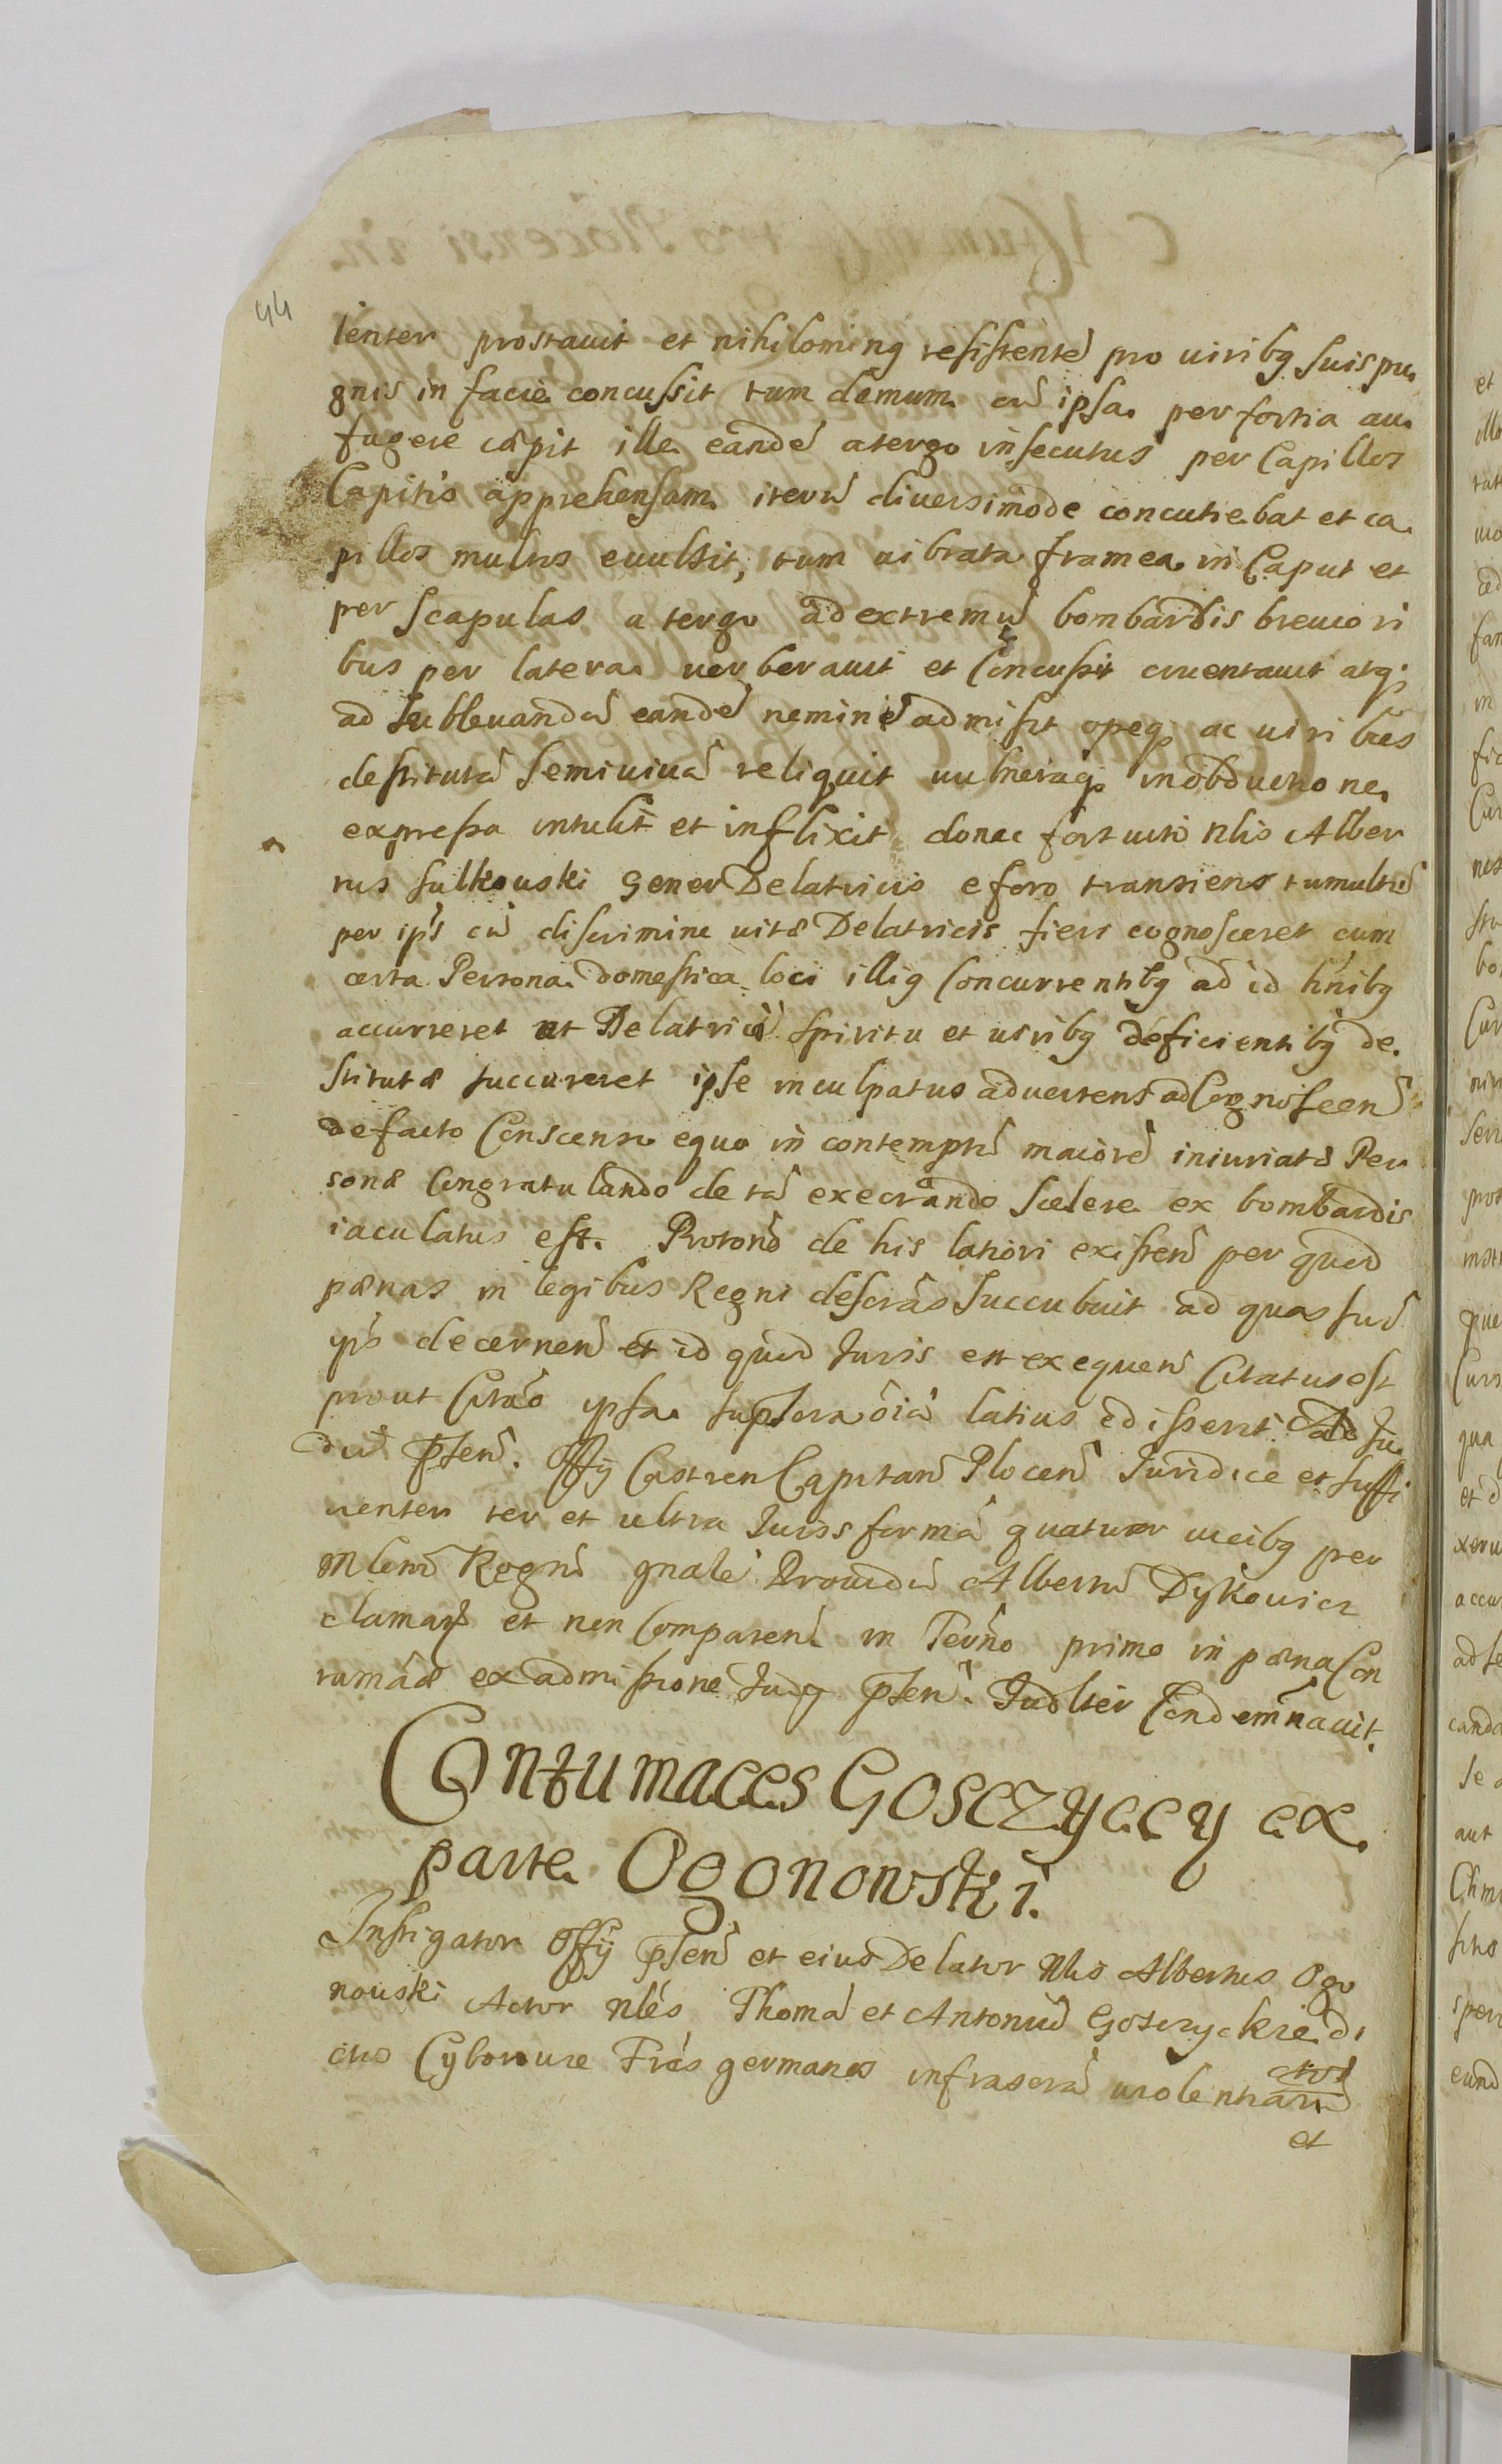 44
lenter prostauit et nihilominq resistente pro uiribq suis pu
gnis in facie concussit tum demum cu ipsa per fortia au
fugere cæpit ille eande a tergo insecutus per Capillos
Capitis apprehensam iteru diuersimode concutiebat et ca
pillos multos euulsit, tum uibrata framea in Caput et
per scapulas a tergo ad extremu bombardis breuiori
bus per latera uerberauit et Concussit cruentauit atq;
ad subleuanda eande nemine admisit opeq ac uiribus
destituta semiuiua reliquit uulneraq in obductione
expressa intulit et inflixit donec fortuito Nlis Alber
tus sulkouski gener Delatricis e foro transiens tumultu
per ips cu discrimine uitæ Delatricis fieri cognosceret cum
certa Persona domestica loci illiq Concurrentibq ad id hnibq
accurreret ut Delatrici spiritu et uiribq deficientibq de
stitutæ succurreret ipse inculpatus aduertens ad Cognoscen
de facto Conscenso equo in contemptu maiore iniuriatæ Per
sonæ Congratulando de ta execrando scelere ex bombardis
iaculatus est. Proton de his latiori existen per quod
pænas in legibus Regni descras succubuit ad quas sup
ips decernen et id quod Iuris est exequen Citatus est
prout Citao ipsa supra oia latius edisserit Ad Iu
diu psen. Offy Castren Capitan Plocen Iuridice et suffi
cienter ter et ultra Iuris forma quatuor uicibq per
Mlem Regni gnale Prouidu Albertu Dykouicz
clamat et non Comparen in Termo primo in pæna Con
tumaæ ex admissione Iudq psen. Iudlter Condemnauit.
Contumaces Gosczyccy ex
parte Ogonowski.
Instigator Offy psen et eius Delator Nlis Albertus Ogo
nouski Actor Nles Thoma et Antoniu Gosczyckie di
cto Cyboroure Fres germanos infrascra uiolentiaru
et